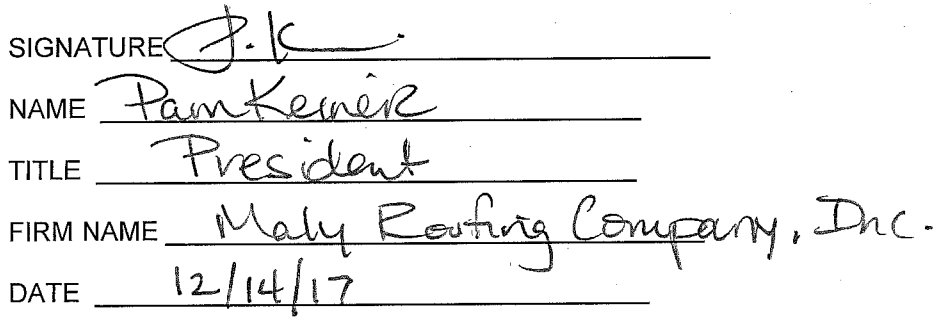 SIGNATURE P. K
NAME Pam Keiner
TITLE President
FIRM NAME Maly Roofing Company, Inc.
DATE 12/14/17